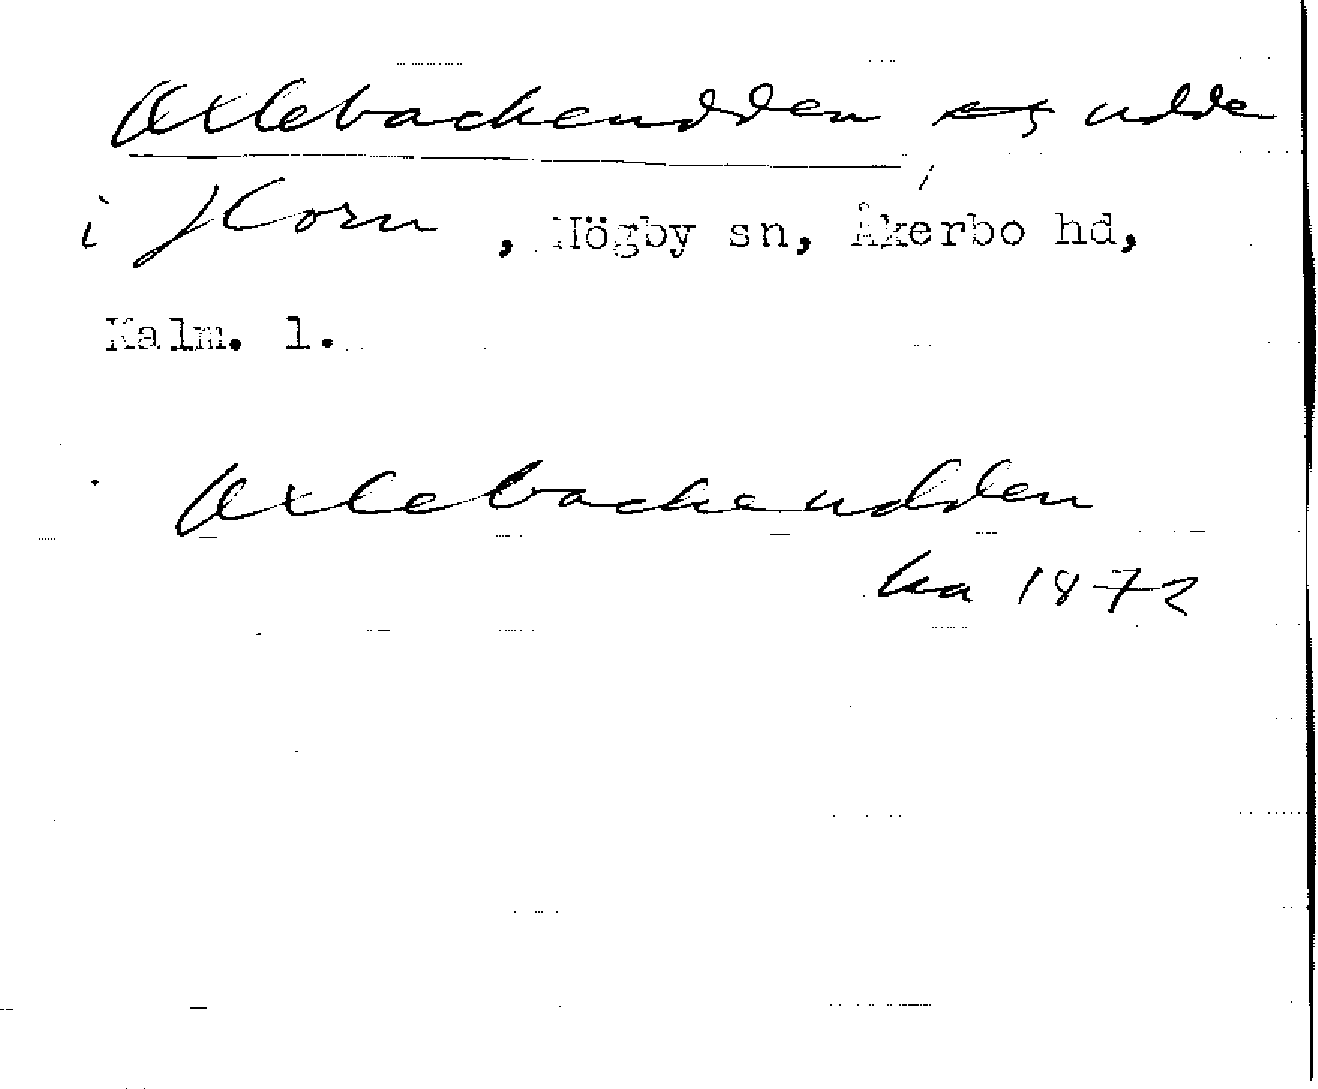 Oxlebackeudden, udde
i Horn, Högby sn, Åkerbo hd,
Kalm. l.
Oxlebackeudden
ka 1872